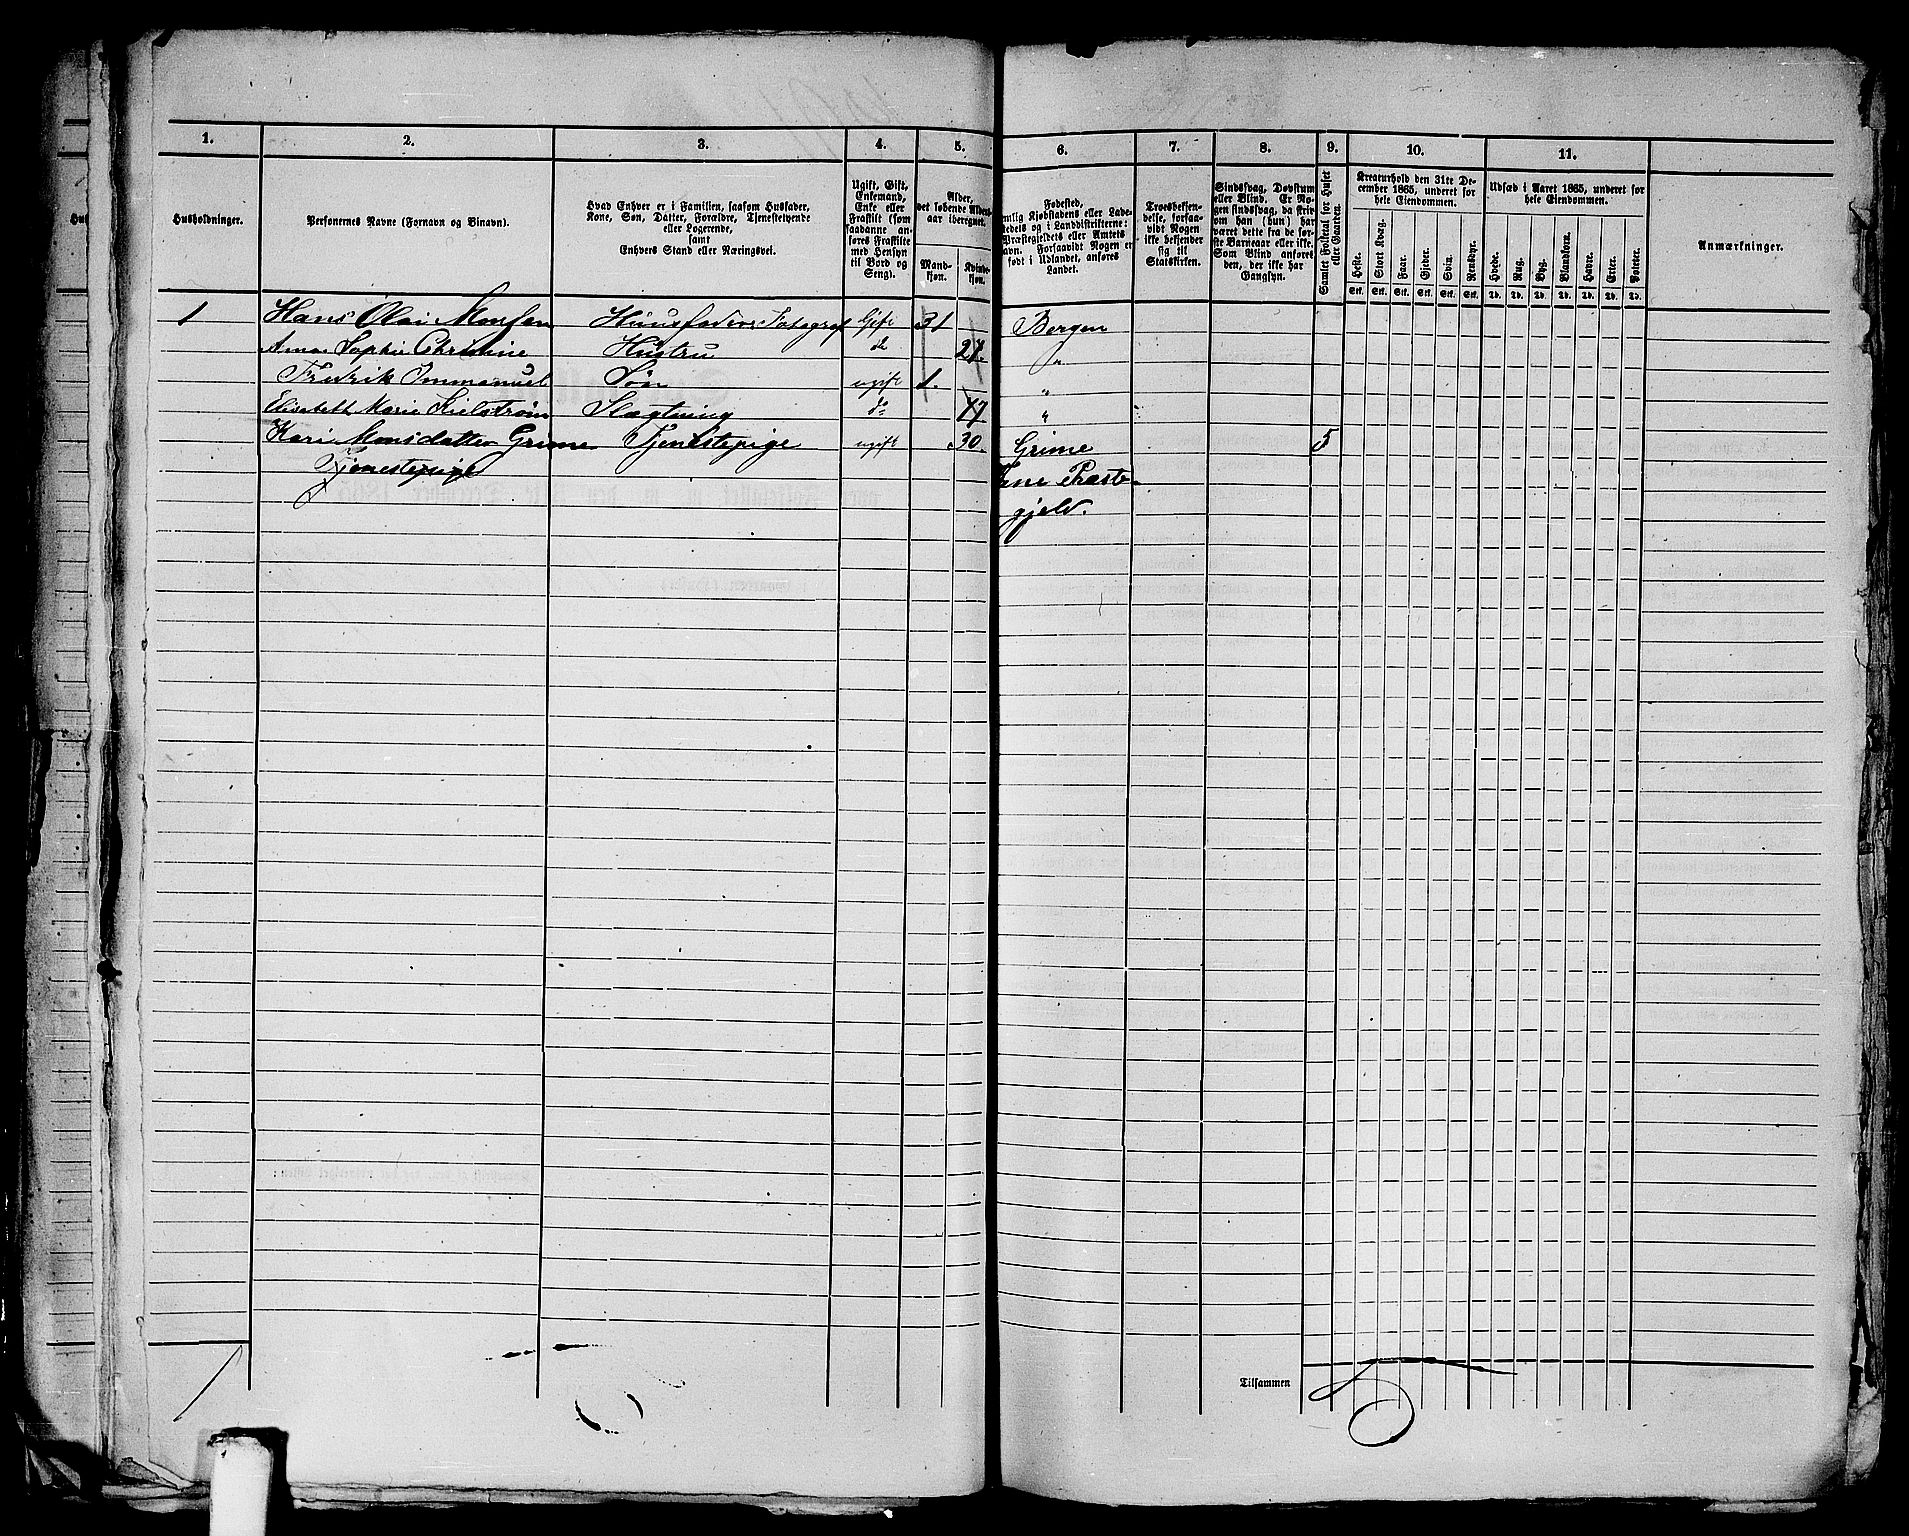 1.
2.
3.
4.
5.
6.
7.
8.
9.
10.
11.
Husholdninger.
Personernes Navne (Fornavn og Binavn).
Hvad Enhver er i Familien, saasom Husfader,
Kone, Søn, Datter, Forældre, Tjenestetyende
eller Logerende,
samt
Enhvers Stand eller Næringsvei.
Ugift, Gift,
Enkemand,
Enke eller
Fraskilt (som
saadanne an-
føres Fraskilte
med Hensyn
til Bord og
Seng).
Alder,
det løbende Alders-
aar iberegnet.
Mand-
kjøn.
Kvinde-
kjøn.
Fødested,
nemlig Kjøbstadens eller Lade-
stedets og i Landdistrikterne:
Præstegjeldets eller Amtets
Navn. Forsaavidt Nogen er
født i Udlandet, anføres
Landet.
Troesbekjen-
delse, forsaa-
vidt Nogen
ikke bekjender
sig til
Statskirken.
Sindssvag, Døvstum
eller Blind. Er No-
gen sindssvag, da skri-
ves om han (hun) har
været dette fra de før-
ste Barneaar eller ikke.
Som Blind anføres
den, der ikke har
Gangsyn.
Samlet Folketal for Huset
eller Gaarden.
Kreaturhold den 31te De-
cember 1865, underet for
hele Eiendommen.
Heste.
Stort Kvæg.
Faar.
Gjeder.
Svin.
Rensdyr.
Stk. Stk. Stk. Stk. Stk. Stk.
Udsæd i Aaret 1865, underet for
hele Eiendommen.
Hvede.
Rug.
Byg.
Blandkorn.
Havre.
Erter.
Poteter.
Td. Td. Td. Td. Td. Td. Td.
Anmærkninger.
1 Hans Olai Monsen Huusfader Fotograf Gift 31 Bergen
Anna Sophie Christine Hustru do 27. "
Fredrik Immanuel Søn ugift 1. "
Elisabeth Marie Kielstrøm Slægtning do 17 "
Kari Monsdatter Grime Tjenestepige ugift 30. Grime 5
Tjenestepige Præste-
gjeld.
Tilsammen